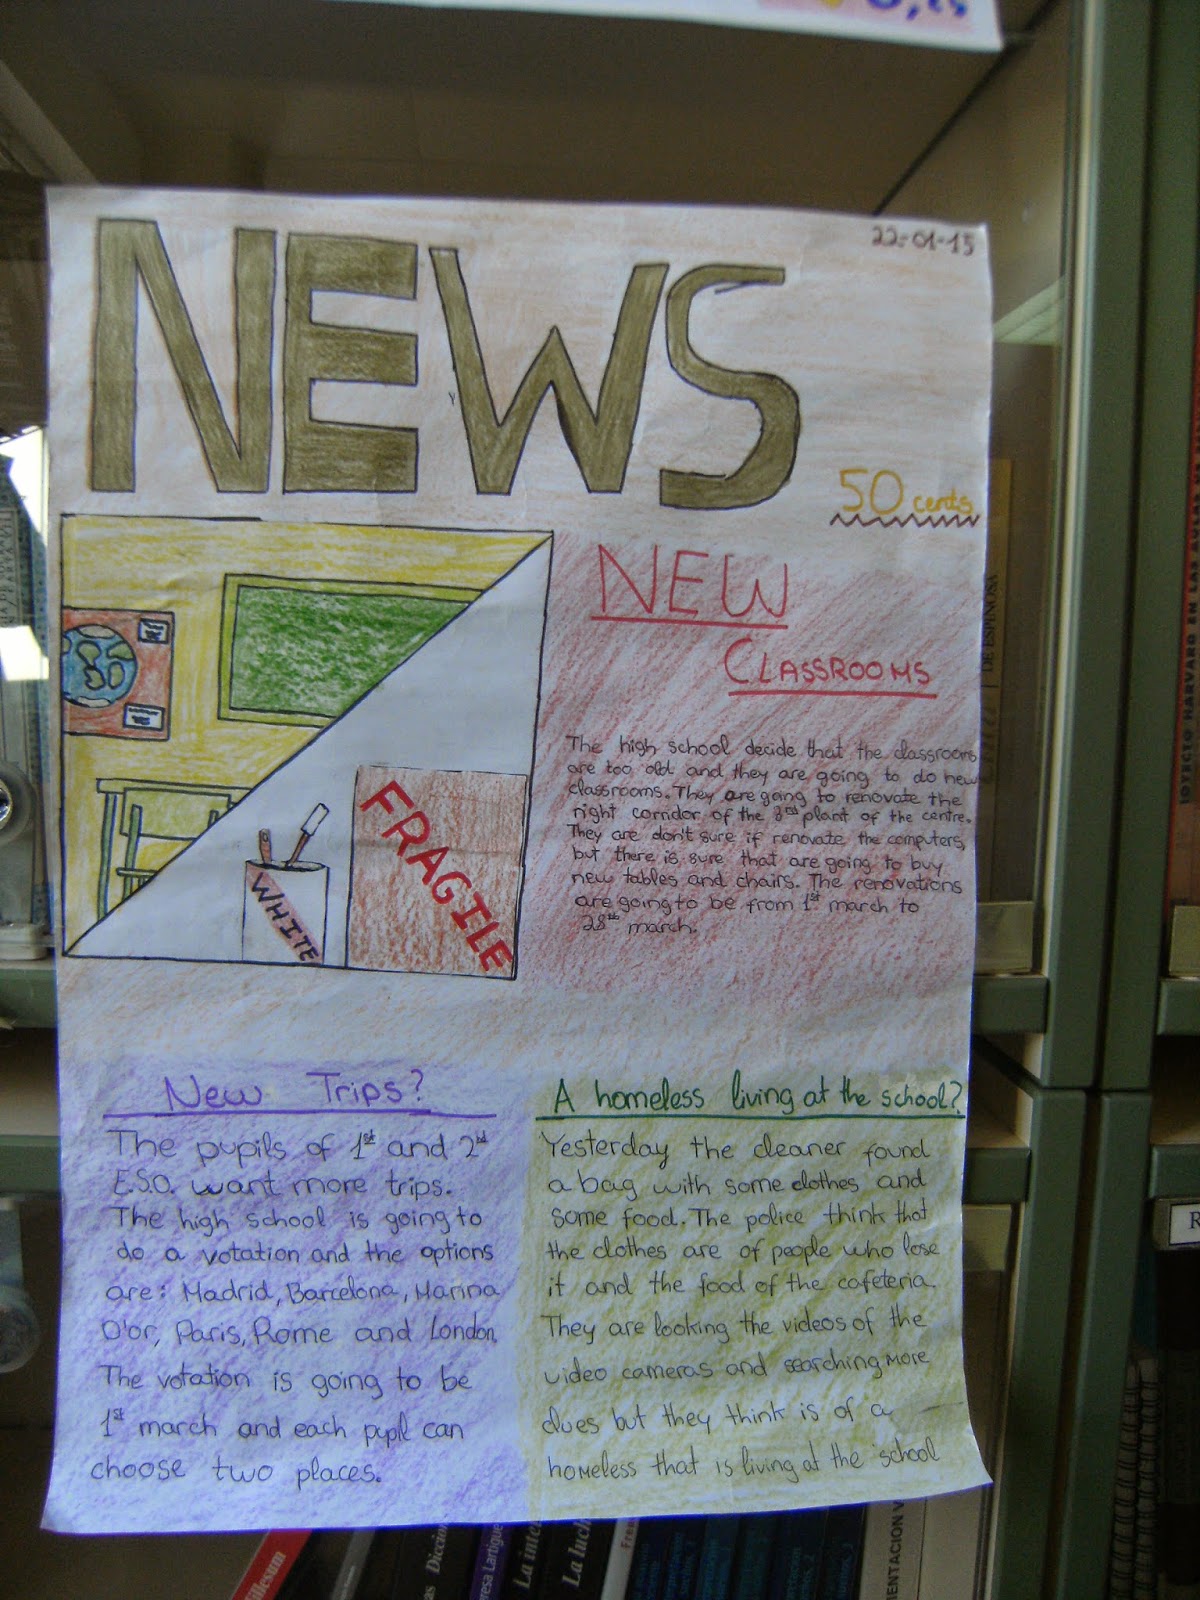 22-01-15
NEWS
50 cents
NEW
CLASSROOMS
FRAGILE
WHITE
The high school decide that the classrooms
are too old and they are going to do new
classrooms. They are going to renovate the
right corridor of the 3rd plant of the centre.
They are don't sure if renovate the computers,
but there is sure that are going to buy
new tables and chairs. The renovations
are going to be from 1st march to
28th march.
New Trips?
The pupils of 1st and 2nd
E.S.O. want more trips.
The high school is going to
do a votation and the options
are: Madrid, Barcelona, Marina
D'or, Paris, Rome and London.
The votation is going to be
1st march and each pupil can
choose two places.
A homeless living at the school?
Yesterday the cleaner found
a bag with some clothes and
some food. The police think that
the clothes are of people who lose
it and the food of the cafeteria.
They are looking the videos of the
video cameras and searching more
clues but they think is of a
homeless that is living at the school
DE ESPINOSA
Diccion
La inte
La luch
ENTACION V
R